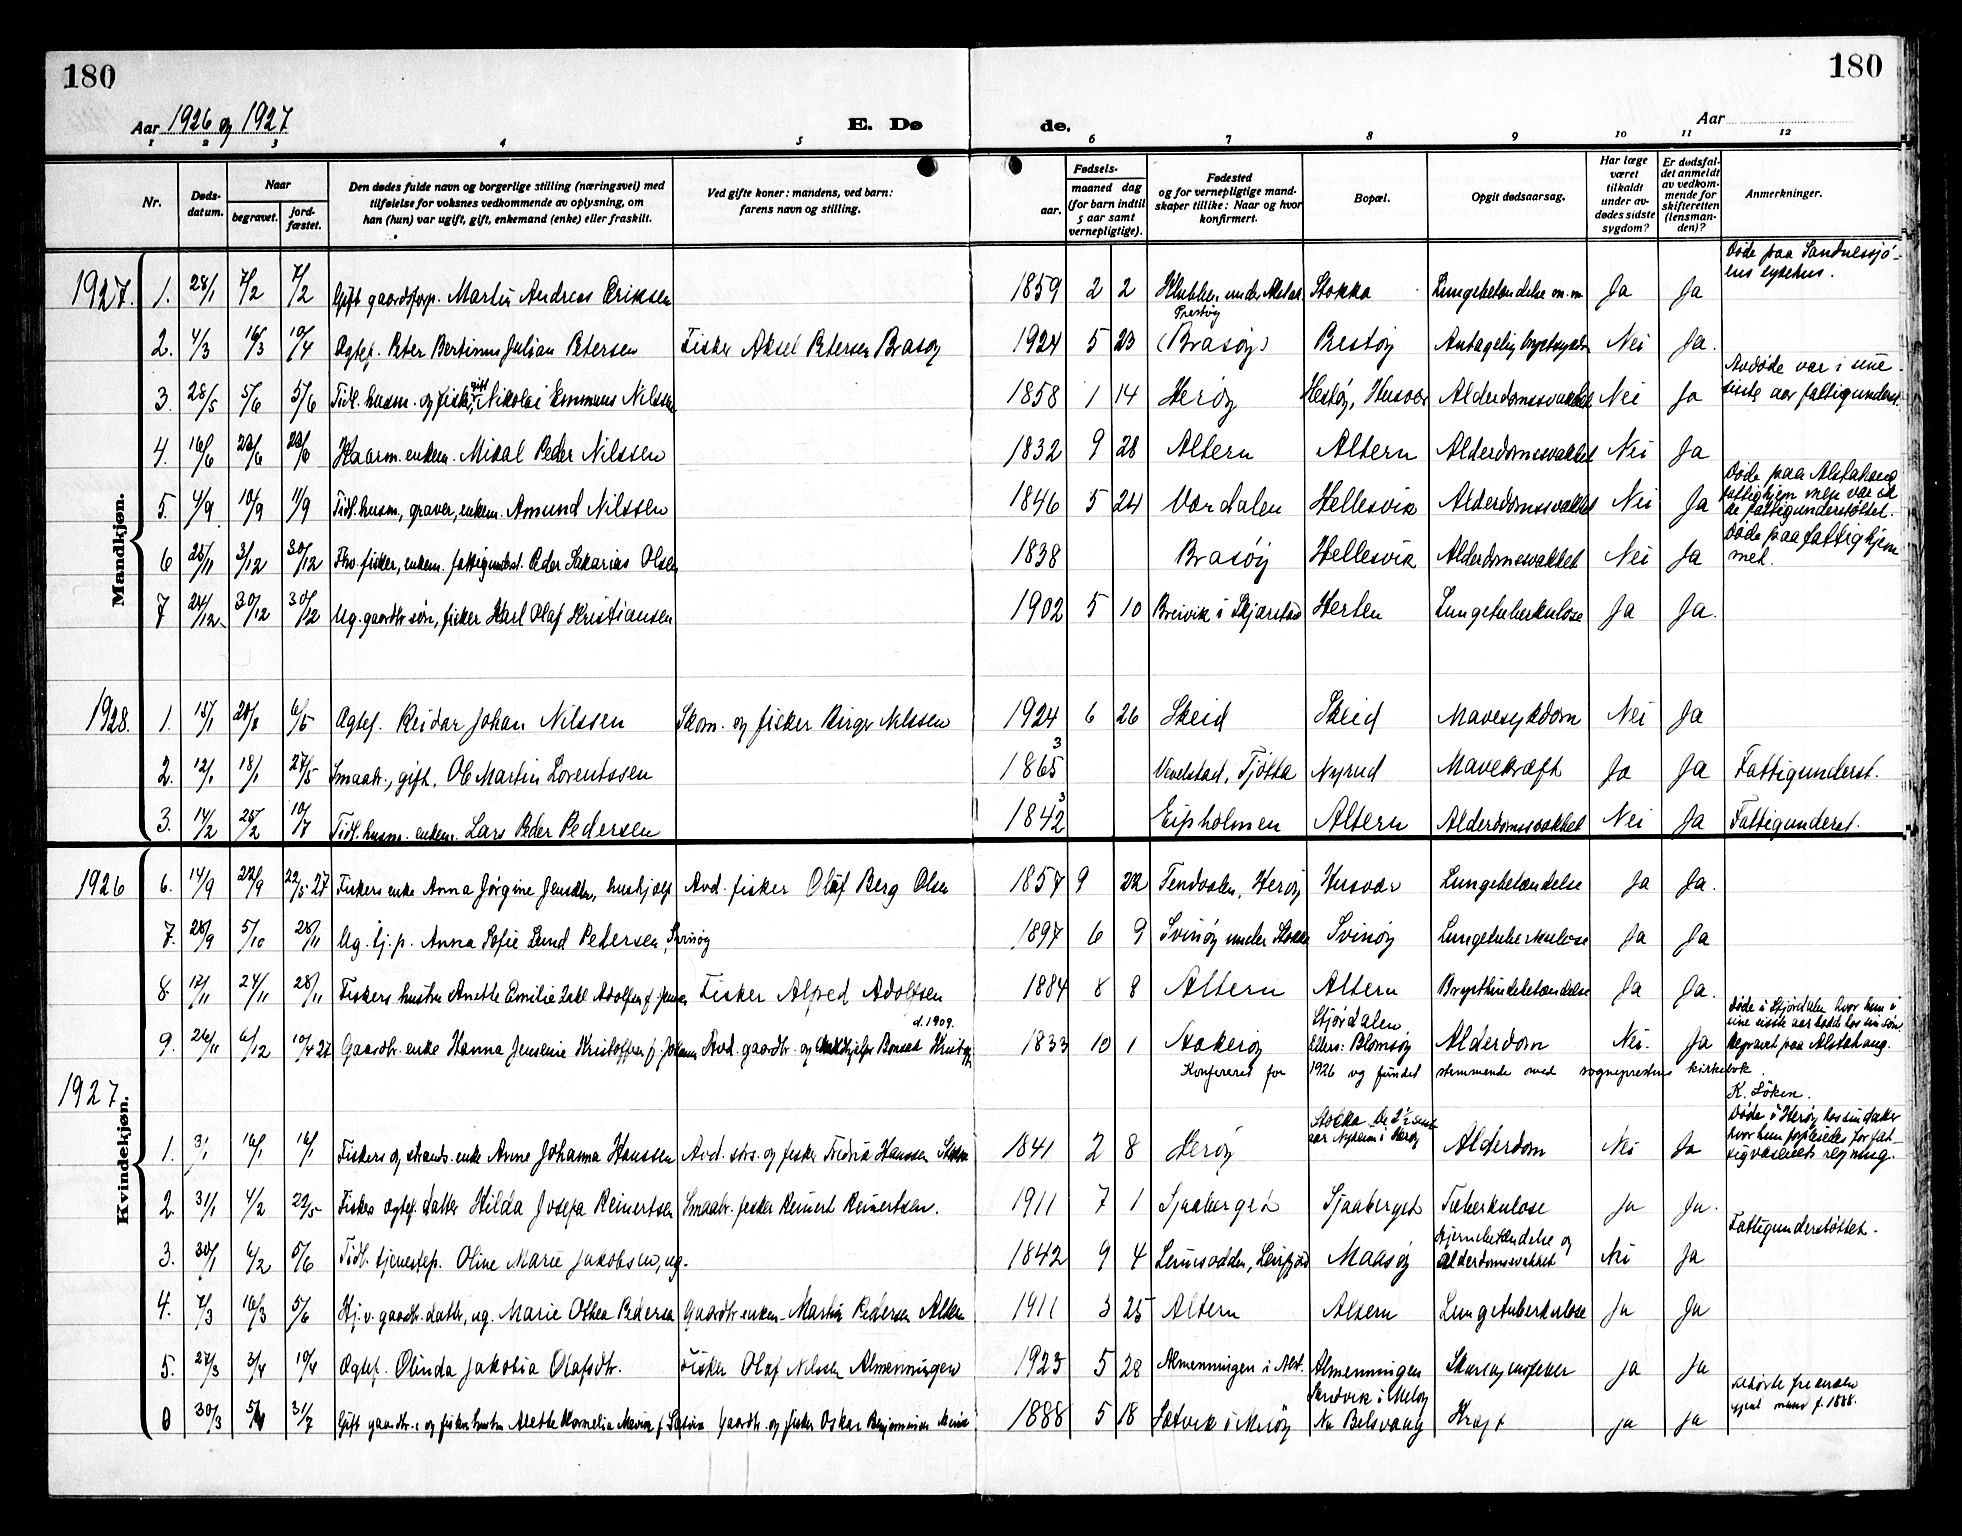 180
180
Aar 1926 og 1927
E. Dø
de.
Aar
1 2 3 4 5 6 7 8 9 10 11 12
Nr.
Døds-datum.
Naar
begravet.
jord-fæstet.
Den dødes fulde navn og borgerlige stilling (næringsvei) med
tilføielse for voksnes vedkommende av oplysning, om
han (hun) var ugift, gift, enkemand (enke) eller fraskilt.
Ved gifte koner: mandens, ved barn:
farens navn og stilling.
Fødsels-
aar.
maaned dag
(for barn indtil
5 aar samt
vernepligtige).
Fødested
og for vernepligtige mand-
skaper tillike: Naar og hvor
konfirmert.
Bopæl.
Opgit dødsaarsag.
Har læge
været
tilkaldt
under av-
dødes sidste
sygdom?
Er dødsfal-
det anmeldt
av vedkom-
mende for
skifteretten
(lensman-
den)?
Anmerkninger.
Mandkjøn.
1927. 1. 28/1 7/2 7/2 Gift gaardsforp. Martin Andreas Eriksen 1859 2 2 under Stokka Lungebetændelse m.m Ja Ja Døde paa Sandnessjøens sykehus.
2. 4/3 16/3 10/4 Ægtef. Peter Bertinus Julian Petersen Fisker Aksel Petersen Brasøy 1924 5 23 Prestøy (Brasøy) Prestøy Antagelig brystsykdom Nei Ja.
3. 28/5 5/6 5/6 Tidl. husm. og fisker, gift Nikolai Nilssen 1858 1 14 Herøy Hestøy, Husvær Alderdomssvakhet Nei Ja Avdøde var i sine siste aar fattigunderst.
4. 16/6 23/6 23/6 Kaarm. enkem. Mikal Peder Nilssen 1832 9 28 Altern Altern Alderdomssvakhet Nei Ja
5. 4/9 10/9 11/9 Tidl. husm, graver, enkem. Amund Nilssen 1846 5 24 Værdalen Hellesvik Alderdomssvakhet Nei Ja Døde paa Alstahaug fattighjem men var ikke fattigunderstøttet.
6 25/11 3/12 30/12 Fhv. fisker, enkem. fattigunderst. Peder Sakarias Olsen 1838 Brasøy Hellesvik Alderdomssvakhet Nei Ja Døde paa fattighjemmet.
7 24/12 30/12 30/12 Ug. gaardbr. søn, fisker Karl Olaf Kristiansen 1902 5 10 Breivik i Skjærstad Herten Lungetuberkulose Ja Ja.
1928. 1. 15/1 6/5 Ægtef. Reidar Johan Nilssen Skom. og fisker Birger Nilssen 1924 6 26 Skeid Skeid Mavesykdom Nei Ja
2. 12/1 18/1 27/5 Smaabr., gift. Ole Martin Lorentssen 1865 3 Vevelstad, Tjøtta Nyrud Mavekræft Ja Ja Fattigunderst.
3. 14/2 25/2 10/7 Tidl. husm. enkem. Lars Peder Pedersen 1842 3 Eipholmen Altern Alderdomssvakhet Nei Ja Fattigunderst.
Kvindekjøn.
1926 6. 14/9 22/9 22/5 27 Fiskers enke Anna Jørgine Jensdtr, hushjælp Avd. fisker Olaf Berg Olsen 1857 9 22 Tendvalen, Herøy Husvær Lungebetændelse Ja Ja.
7. 28/9 5/10 28/11 Ug. tj. p. Anna Sofie Lund Petersen, Svinøy 1897 6 9 Svinøy under Stokka Svinøy Lungetuberkulose Ja Ja
8 17/11 24/11 28/11 Fiskers hustru Anette Emilie Adolfsen f. Jensen Fisker Alfred Adolfsen 1884 8 8 Altern Altern Brysthindebetændelse Ja Ja.
9. 26/11 6/12 10/4 27 Gaardbr. enke Hanna Jensenie Kristoffersen f. Avd. gaardbr. og Kristoffersen d. 1909. 1833 10 1 Aakerøy Stjørdalen Ellers: Blomsøy Alderdom Nei. Ja Døde i Stjørdalen hvor hun i sine siste aar hadde hos sin søn. Begravet paa Alstahaug.
Konfereret for 1926 og fundet stemmende med sogneprestens kirkebok
K. Løken.
1927 1. 3/1 16/1 16/1 Fiskers og strands. enke Anne Johanna Hanssen Avd. og fisker Fredrik Hanssen Stokka 1841 2 8 Herøy Stokka De 2 1/2 siste aar Nyheim i Herøy Alderdom Nei Ja Døde i Herøy hos sin datter hvor hun forpleiedes for fattigvæsenets regning.
2. 31/1 4/2 22/5 Fiskers ægtef. datter Hilda Josefa Reinertsen Smaabr. fisker Reinert Reinertsen. 1911 7 1 Sjaaberget Sjaaberget Tuberkulose Ja Ja.
3. 30/1 6/2 5/6 Tidl. tjenestep. Oline Marie Jakobsen, ug. 1842 9 4 Leinesodden, Leirfjord Maasøy Hjernebetændelse og alderdomssvakhet Nei Ja Fattigunderstøttet.
4. 7/3 16/3 5/6 Hj. v. gaardbr. datter, ug. Marie Othea Pedersen Gaardbr enkem. Martin Pedersen Altern 1911 3 25 Altern Altern Lungetuberkulose Ja Ja
5. 27/3 3/4 10/4 Ægtef. Olinda Jakobia Olafsdtr. Fisker Olaf Nilssen Almenningen 1925 5 28 Almenningen i Alst. Almenningen Skarlagensfeber Ja Ja
30/3 31/7 Gift gaardbr. og fiskers hustru Anette Kornelia Gaardbr. og fisker Oskar Benjaminsen 1888 5 18 Sandvik i Meløy Nu Belsvaag Kræft Ja Ja f. 1888.